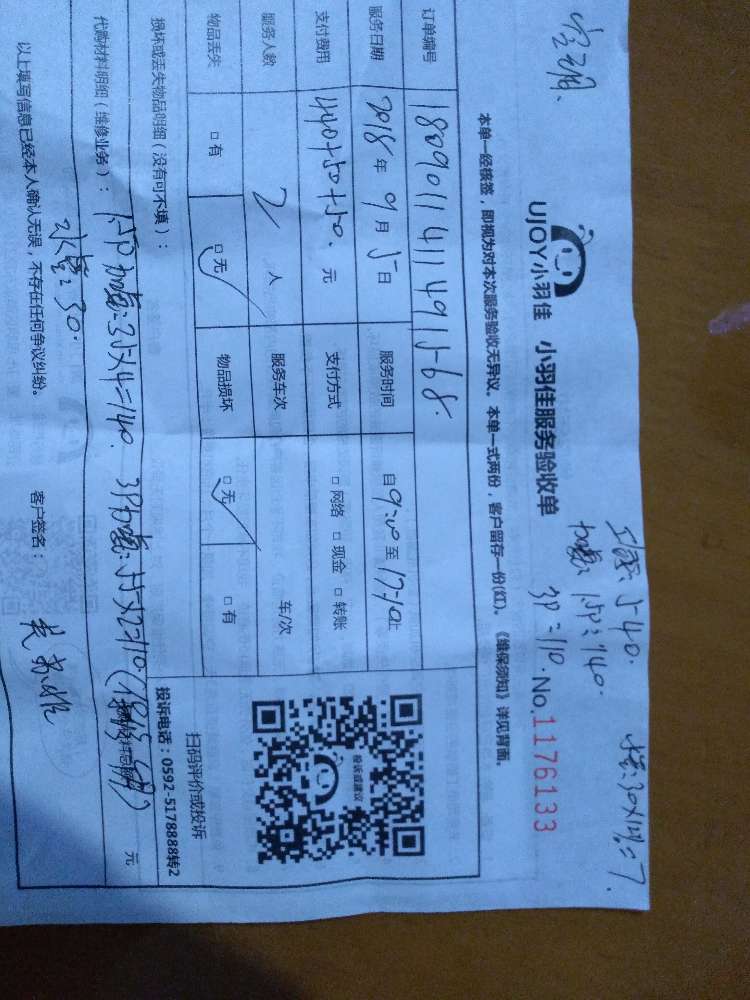 工费:540.
加氟:1.5P:140.
3P=110.
UJOY小羽佳 小羽佳服务验收单
No.1176133
本单一经核签，即视为对本次服务验收无异议。本单一式两份，客户留存一份(红)。《维保须知》详见背面。
订单编号 18090114114915-68.
服务日期 2018年9月5日 服务时间 自9:00至17:10止
支付费用 440+50+50. 元 支付方式 □网络 □现金 □转账
服务人数 2人 服务车次 车/次
物品丢失 □有 □无✓ 物品损坏 □无✓ □有
损坏或丢失物品明细（没有可不填）：
代购材料明细（维修业务）：1.5P加氟:35×4=140. 3P加氟:55×2=110 元
水管:30.
以上填写信息已经本人确认无误，不存在任何争议纠纷。 客户签名：
投诉或建议
扫码评价或投诉
投诉电话：0592-5178888转2